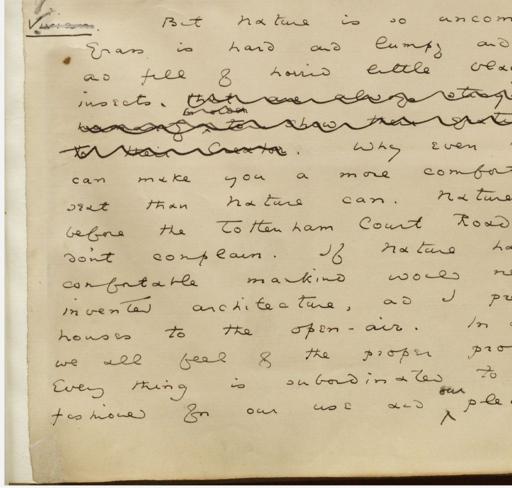 Vivian. But nature is so uncom
Grass is hard and lumpy and
and full of horrid little black
insects.
. Why even
can make you a more comfort
seat than Nature can. Nature
before the Tottenham Court Road
don't complain. If Nature ha
comfortable mankind would ne
invented architecture, and I pre
houses to the open-air. In a
we all feel of the proper pro
Every thing is subordinated to
our
fashioned for our use and ple